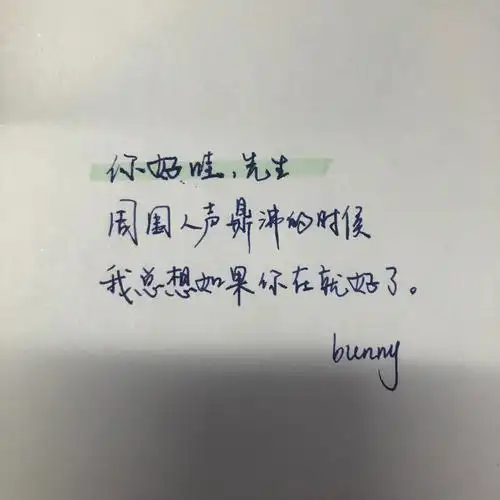 你好哇,先生
周围人声鼎沸的时候
我总想如果你在就好了。
bunny